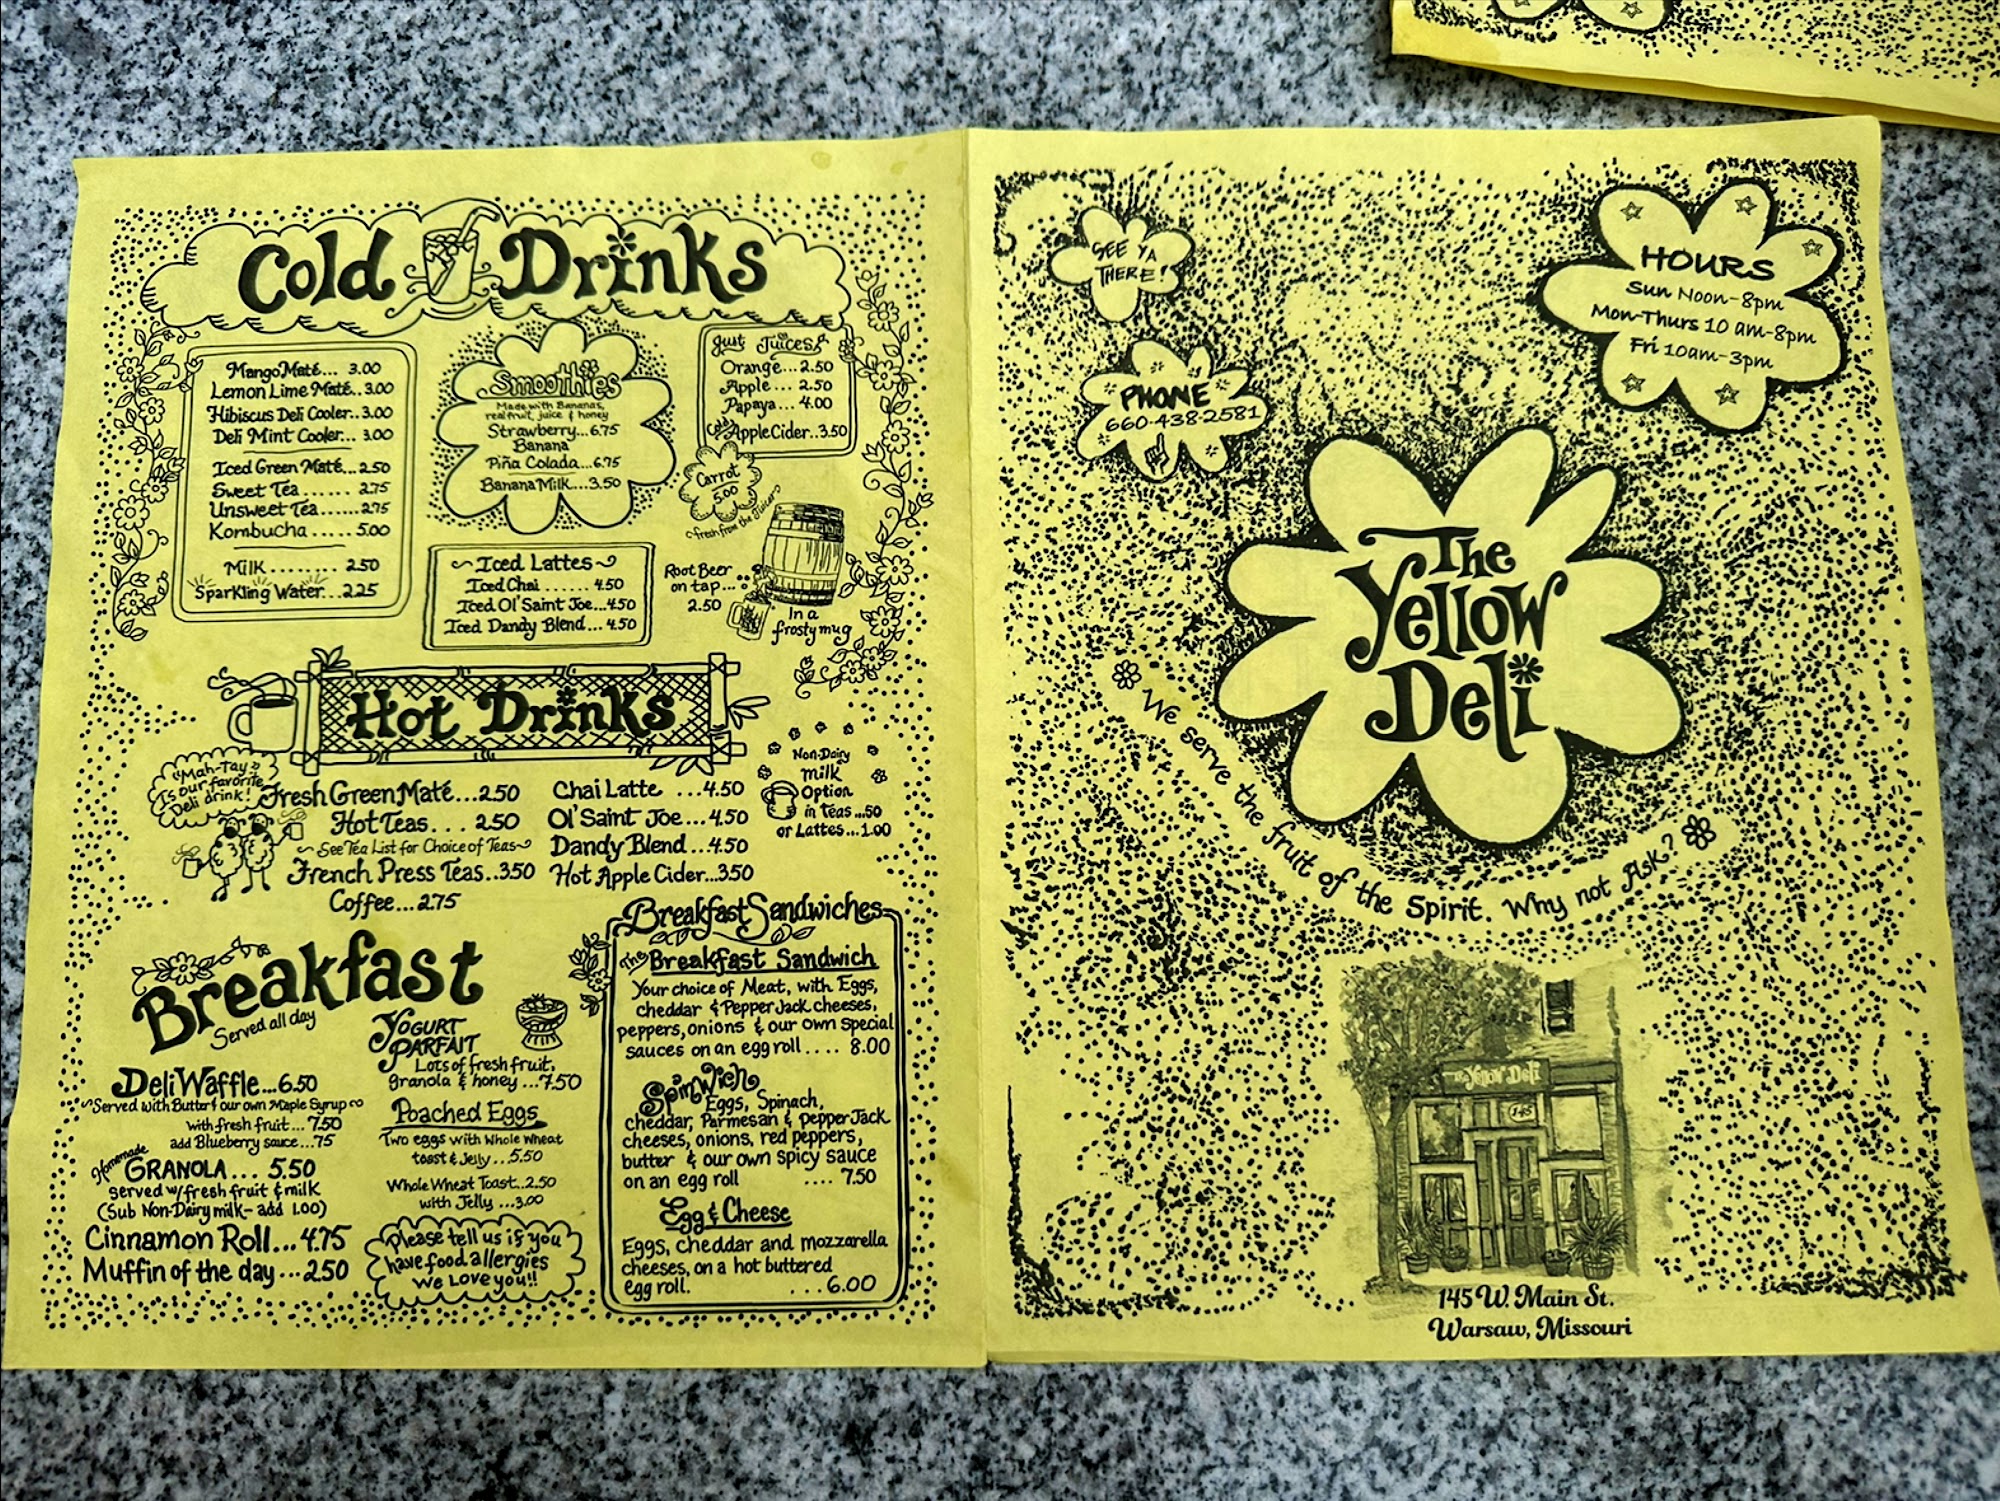 Cold Drinks
Mango Maté... 3.00
Lemon Lime Maté..3.00
Hibiscus Deli Cooler..3.00
Deli Mint Cooler... 3.00
Iced Green Maté...2.50
Sweet Tea...... 2.75
Unsweet Tea.......2.75
Kombucha ..... 5.00
Milk ......... 2.50
Sparkling Water...2.25
Smoothies
Made with Bananas,
real fruit, juice & honey
Strawberry...6.75
Banana
Piña Colada...6.75
Banana Milk....3.50
Just Juices
Orange...2.50
Apple ... 2.50
Papaya... 4.00
Cold Apple Cider..3.50
Carrot
5.00
fresh from the Juicer
Iced Lattes
Iced Chai ...... 4.50
Iced Ol' Saint Joe...4.50
Iced Dandy Blend... 4.50
Root Beer
on tap...
2.50
In a
frosty mug
Hot Drinks
"Mah-Tay"
Is our favorite
Deli drink!
Fresh Green Maté...2.50
Hot Teas... 2.50
See Tea List for Choice of Teas
French Press Teas..3.50
Coffee...2.75
Chai Latte ...4.50
Ol' Saint Joe...4.50
Dandy Blend..4.50
Hot Apple Cider...3.50
Non-Dairy
milk
Option
in Teas....50
or Lattes...1.00
Breakfast
Served all day
Deli Waffle...6.50
Served with Butter & our own Maple Syrup
with fresh fruit... 7.50
add Blueberry sauce...75
Homemade
GRANOLA... 5.50
served w/fresh fruit & milk
(Sub Non-Dairy milk- add 1.00)
Cinnamon Roll...4.75
Muffin of the day...2.50
YOGURT
PARFAIT
Lots of fresh fruit,
granola & honey ...7.50
Poached Eggs
Two eggs with Whole Wheat
toast & Jelly...5.50
Whole Wheat Toast..2.50
with Jelly ...3.00
Please tell us if you
have food allergies
We Love you!!
Breakfast Sandwiches
The Breakfast Sandwich
Your choice of Meat, with Eggs,
cheddar & Pepper Jack cheeses,
peppers, onions & our own special
sauces on an egg roll .... 8.00
Spinwich
Eggs, Spinach,
cheddar, Parmesan & pepper Jack
cheeses, onions, red peppers,
butter & our own spicy sauce
on an egg roll .... 7.50
Egg & Cheese
Eggs, cheddar and mozzarella
cheeses, on a hot buttered
egg roll. ...6.00
SEE YA
THERE!
PHONE
660-438-2581
HOURS
Sun Noon-8pm
Mon-Thurs 10 am-8pm
Fri 10am-3pm
The
Yellow
Deli
We serve the fruit of the Spirit. Why not Ask?
The Yellow Deli
145
145 W. Main St.
Warsaw, Missouri